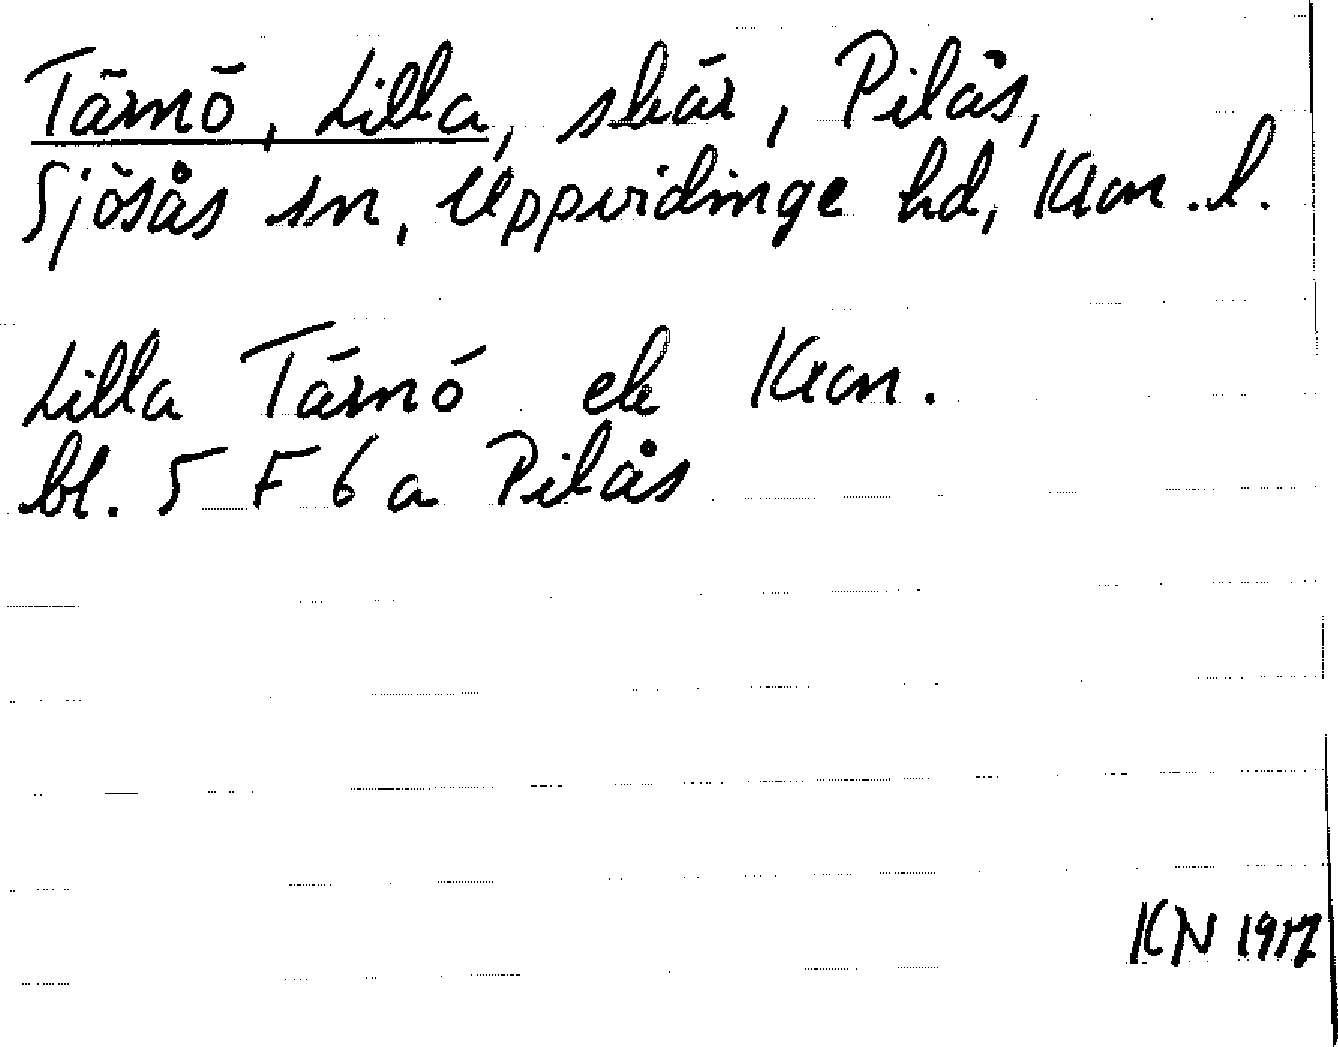 Tärnö, Lilla, skär, Pilås,
Sjösås sn, Uppvidinge hd, Kron. l.
Lilla Tärnö ek Kron.
bl. 5 F 6 a Pilås
KN